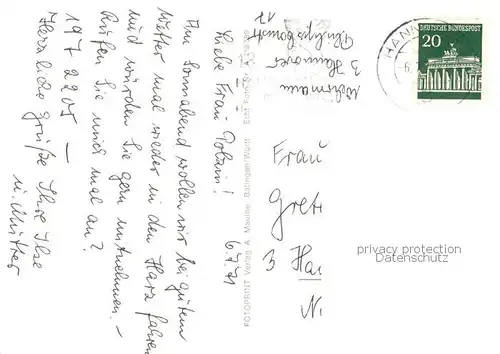 6.7.71
Liebe Frau Polann!
Am Sonnabend wollen wir bei gutem
Wetter mal wieder in den Harz fahren
und würden Sie gern mitnehmen. –
Rufen Sie mich mal an?
1972205 –
Herzliche Grüße Ihre Ilse
u. Mutter
FOTOPRINT Verlag A. Mauthe Balingen/Württ Echt Foto
3 Hannover
17
HANN
DEUTSCHE BUNDESPOST
20
Frau
Grete
3 Han
N
privacy protection
Datenschutz